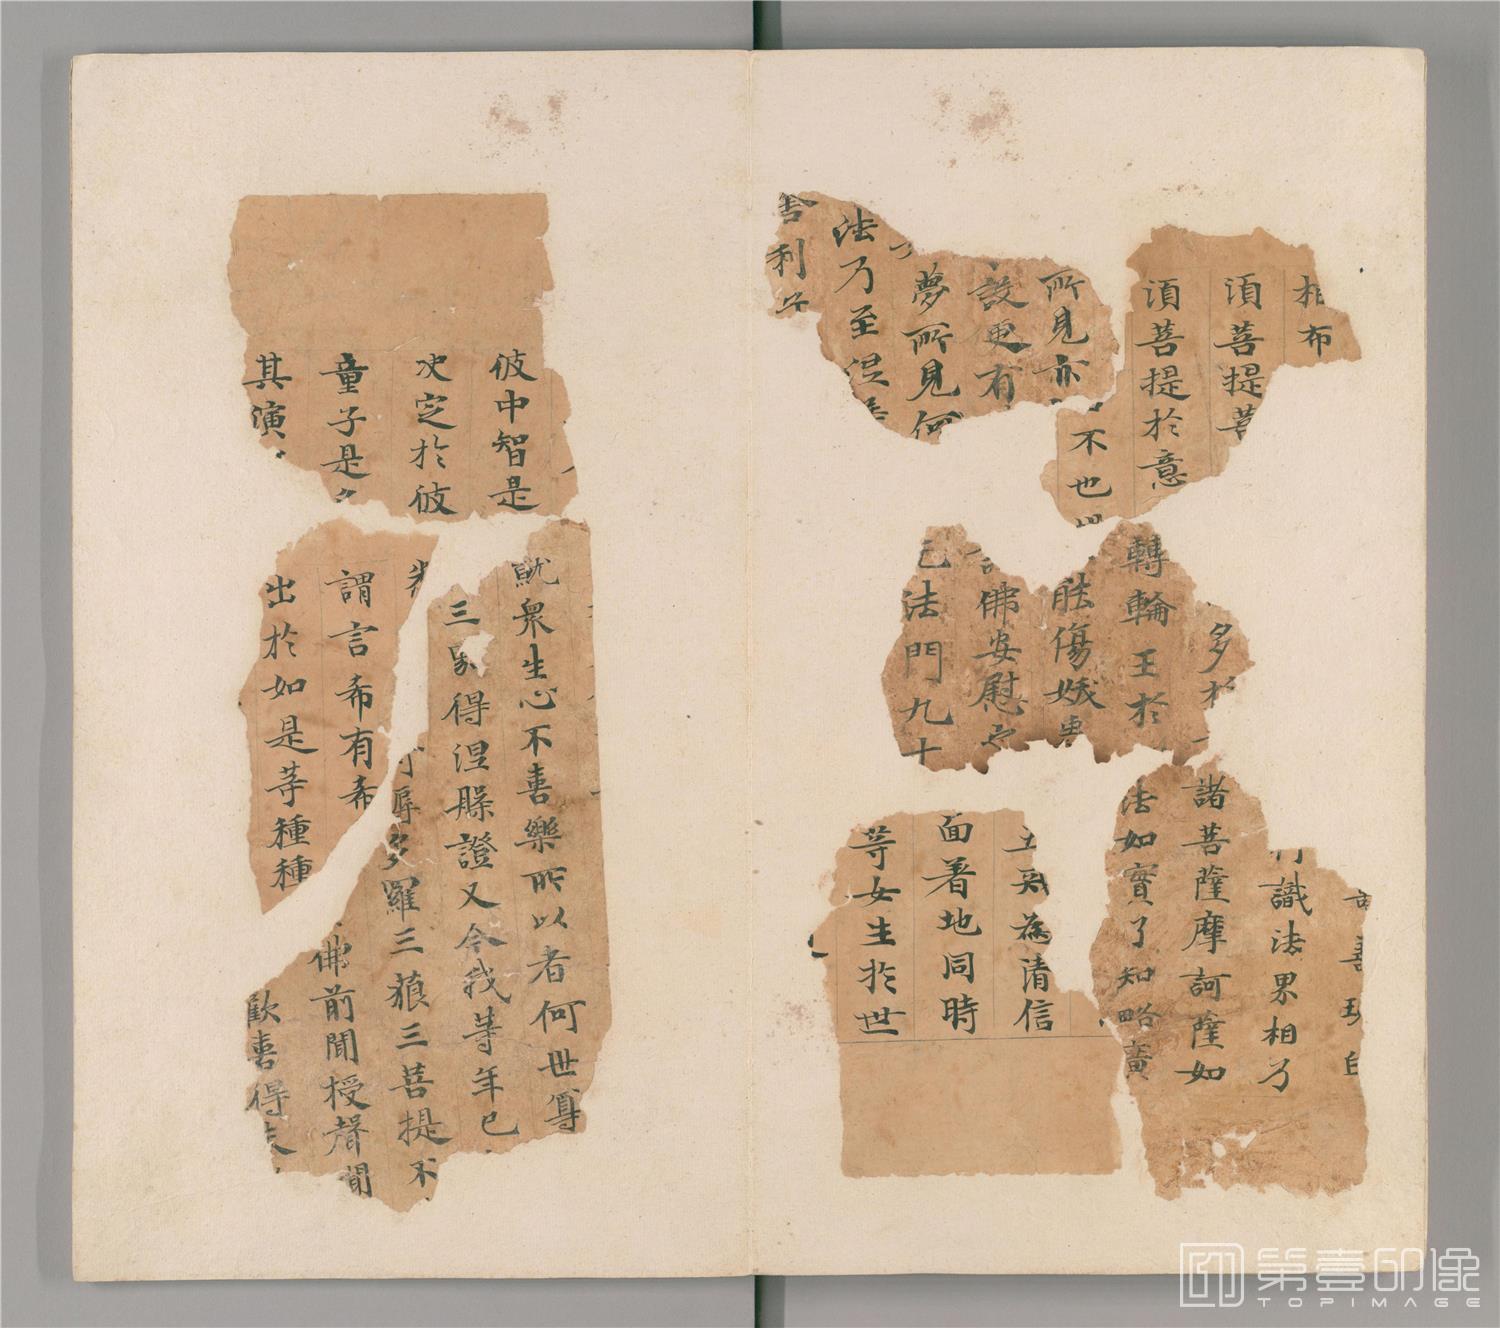 相布
須菩提菩
須菩提於意
不也世
所見亦
設更有
夢所見何
法乃至涅
舍利子
多於
轉輪王於
能傷娥
佛安慰
法門九十
善現白
行識法界相乃
諸菩薩摩訶薩如
法如實了知略廣
為清信
面著地同時
等女生於世
彼中智是
決定於彼
童子是
其演
就衆生心不喜樂所以者何世尊
三界得涅槃證又今我等年已
耨多羅三藐三菩提不
佛前聞授聲聞
歡喜得未
謂言希有希
出於如是等種種
第壹印像
TOPIMAGE